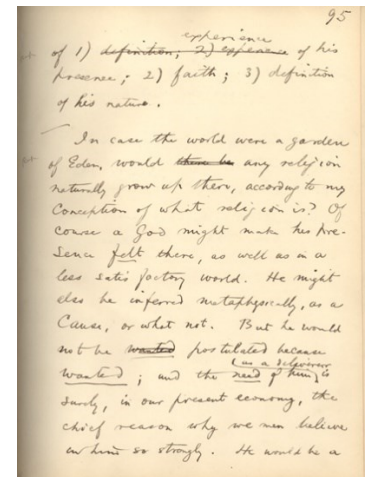 95
experience
of 1) definition; 2) experience of his
presence; 2) faith; 3) definition
of his nature.
In case the world were a garden
of Eden, would there be any religion
naturally grow up there, according to my
conception of what religion is? Of
course a God might make his pre-
sence felt there, as well as in a
less satisfactory world. He might
also be inferred metaphysically, as a
Cause, or what not. But he would
not be wanted postulated because
(as a deliverer
wanted; and the need of him, is
surely, in our present economy, the
chief reason why we men believe
in him so strongly. He would be a